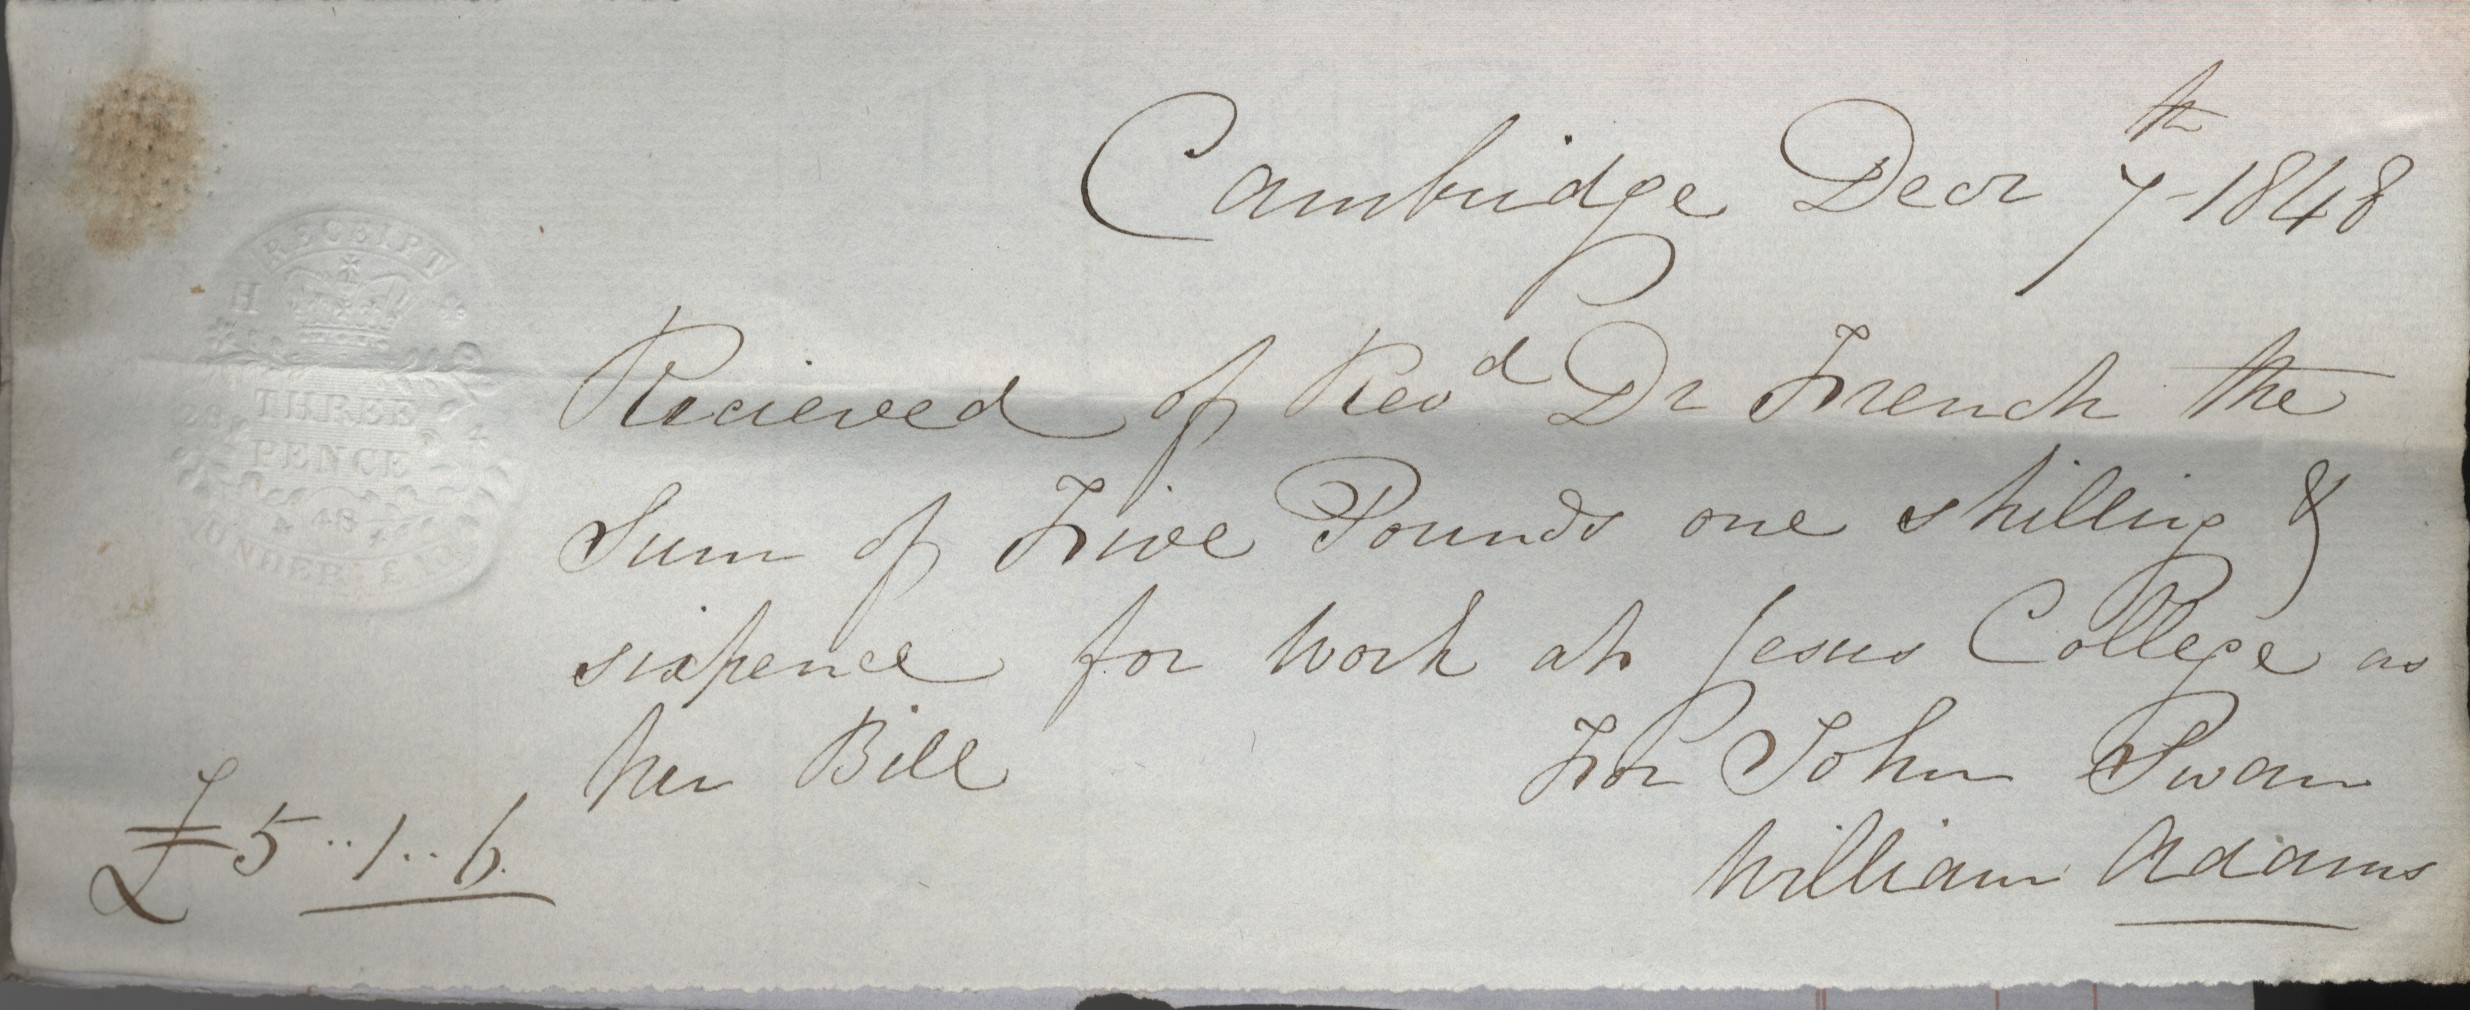 Cambridge Decr 7th 1848
RECEIPT
H
THREE
PENCE
48
UNDER £10
Recieved of Revd Dr French the
Sum of Five Pounds one shilling &
sixpence for Work at Jesus College as
per Bill
For John Swan
£5..1..6.
William Adams